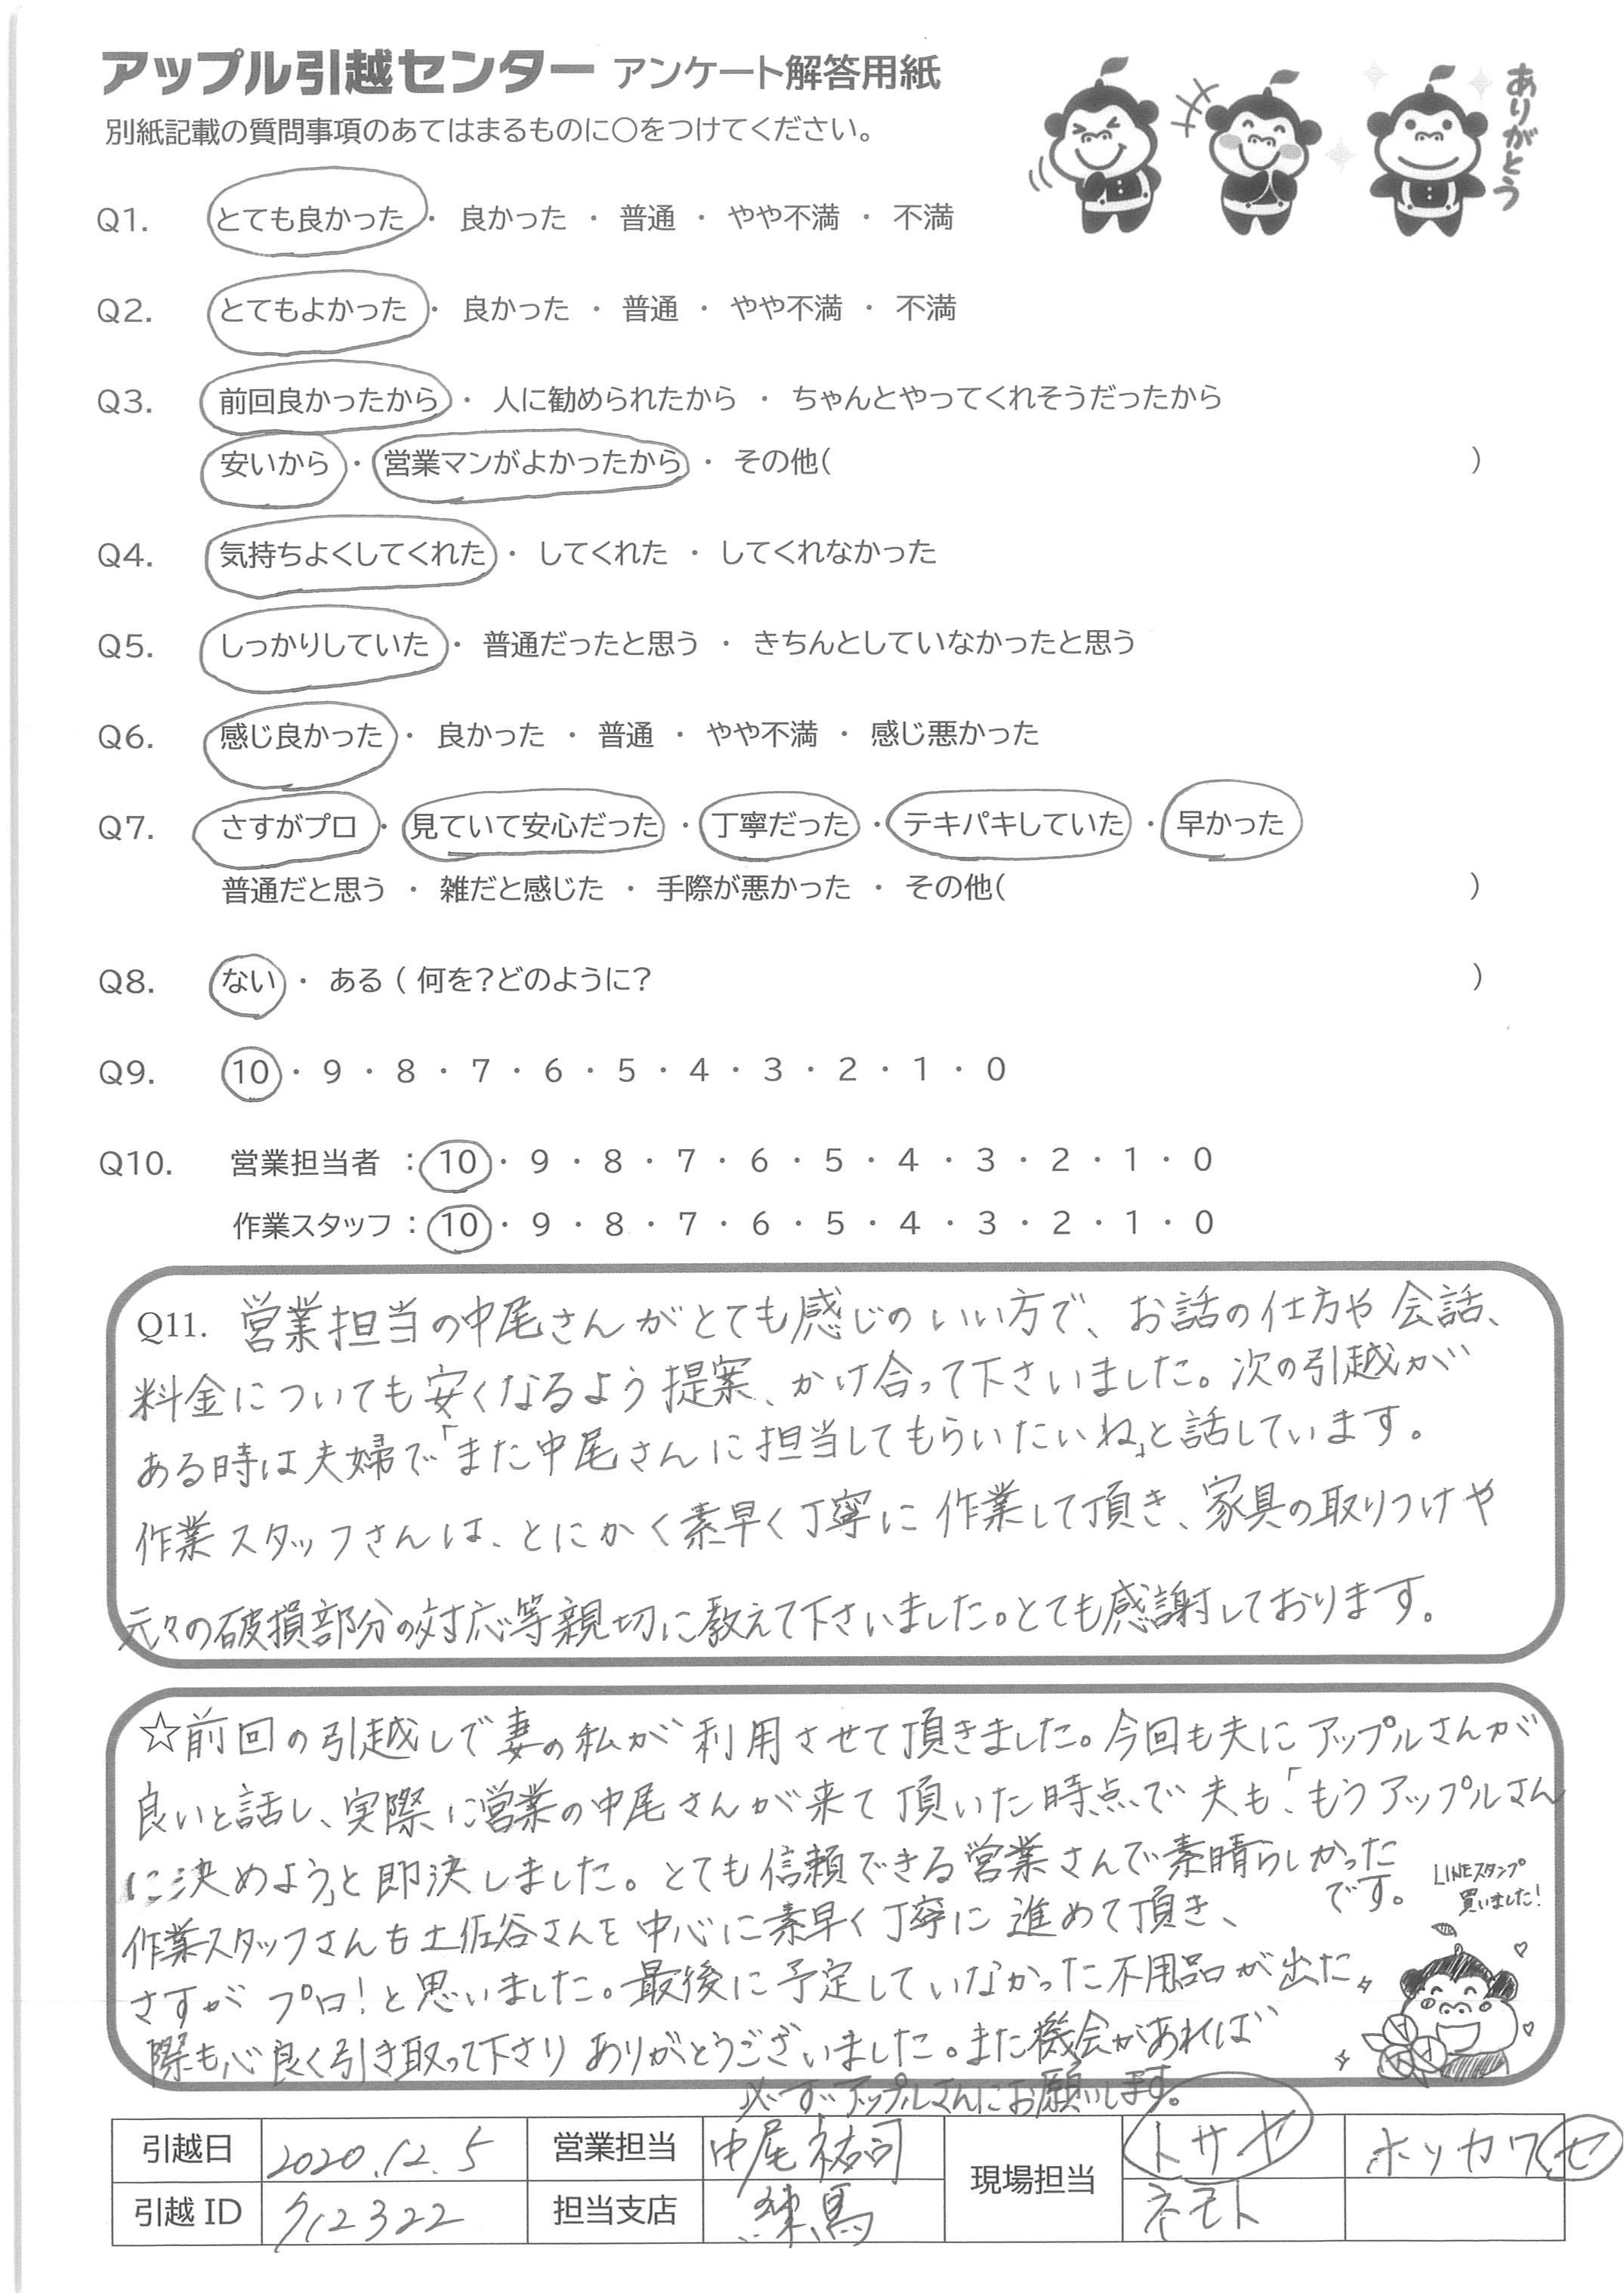 アップル引越センター アンケート解答用紙
別紙記載の質問事項のあてはまるものに○をつけてください。
ありがとう
Q1. とても良かった ・ 良かった ・ 普通 ・ やや不満 ・ 不満
Q2. とてもよかった ・ 良かった ・ 普通 ・ やや不満 ・ 不満
Q3. 前回良かったから ・ 人に勧められたから ・ ちゃんとやってくれそうだったから
安いから ・ 営業マンがよかったから ・ その他( )
Q4. 気持ちよくしてくれた ・ してくれた ・ してくれなかった
Q5. しっかりしていた ・ 普通だったと思う ・ きちんとしていなかったと思う
Q6. 感じ良かった ・ 良かった ・ 普通 ・ やや不満 ・ 感じ悪かった
Q7. さすがプロ ・ 見ていて安心だった ・ 丁寧だった ・ テキパキしていた ・ 早かった
普通だと思う ・ 雑だと感じた ・ 手際が悪かった ・ その他( )
Q8. ない ・ ある ( 何を?どのように? )
Q9. 10 ・ 9 ・ 8 ・ 7 ・ 6 ・ 5 ・ 4 ・ 3 ・ 2 ・ 1 ・ 0
Q10. 営業担当者 : 10 ・ 9 ・ 8 ・ 7 ・ 6 ・ 5 ・ 4 ・ 3 ・ 2 ・ 1 ・ 0
作業スタッフ : 10 ・ 9 ・ 8 ・ 7 ・ 6 ・ 5 ・ 4 ・ 3 ・ 2 ・ 1 ・ 0
Q11. 営業担当の中尾さんがとても感じのいい方で、お話の仕方や会話、
料金についても安くなるよう提案、かけ合って下さいました。次の引越が
ある時は夫婦で「また中尾さんに担当してもらいたいね」と話しています。
作業スタッフさんは、とにかく素早く丁寧に作業して頂き、家具の取りつけや
元々の破損部分の対応等親切に教えて下さいました。とても感謝しております。
☆前回の引越しで妻の私が利用させて頂きました。今回も夫にアップルさんが
良いと話し、実際に営業の中尾さんが来て頂いた時点で夫も「もうアップルさん
に決めよう」と即決しました。とても信頼できる営業さんで素晴らしかった
です。
LINEスタンプ
買いました!
作業スタッフさんも土佐谷さんを中心に素早く丁寧に進めて頂き、
さすがプロ!と思いました。最後に予定していなかった不用品が出た
際も心良く引き取って下さりありがとうございました。また機会があれば
必ずアップルさんにお願いします。
引越日 2020.12.5 営業担当 中尾祐司 現場担当 トサヤ ホソカワ セ
引越ID 912322 担当支店 練馬 ネモト